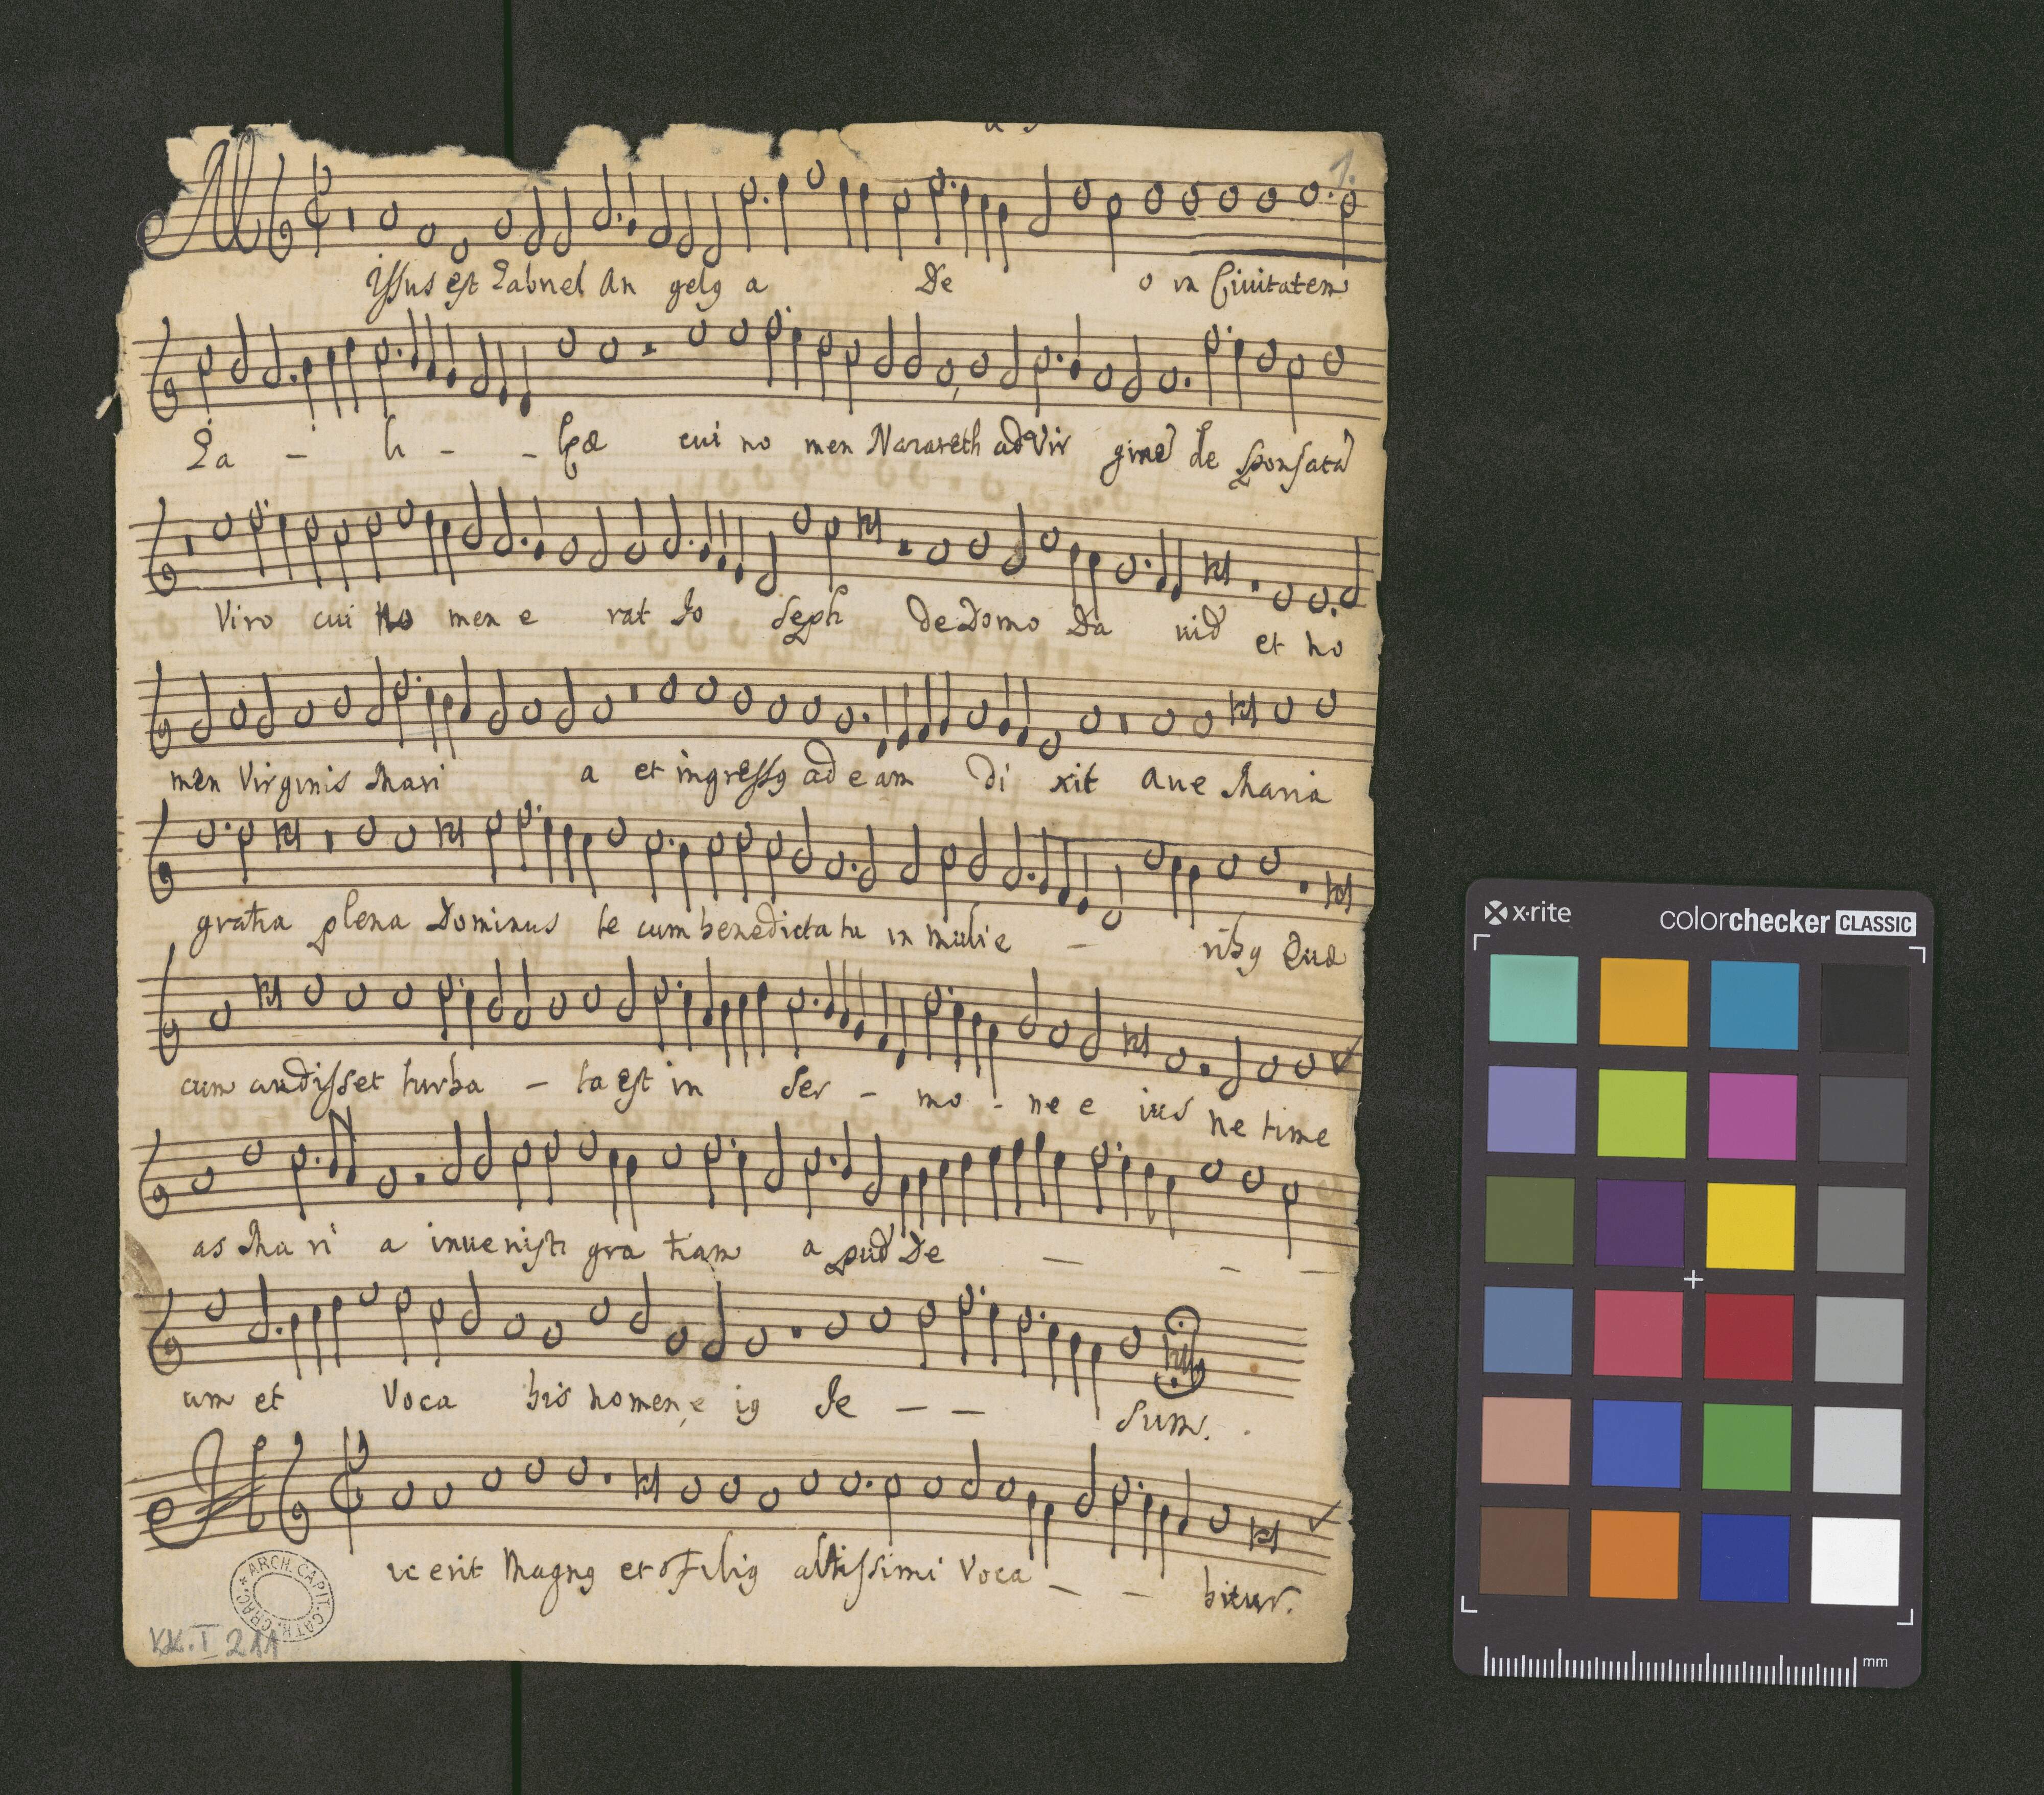 a 5
1.
Missus est Gabriel An gelꝰ a De o in Ciuitatem
Ga - li - - leæ cui no men Nazareth ad Vir ginē de sponsatā
Viro cui no men e rat Jo seph de Domo Da uid et no
men Virginis Mari a et ingressꝰ ad e am di xit aue Maria
gratia plena Dominus te cum benedicta tu in mulie - ribꝰ Quæ
cum audisset turba - ta est in ser - mo - ne e ius ne time
as Ma ri a inuenisti gra tiam a pud De - - -
um et Voca bis nomen e iꝰ Je - - sum.
Hic erit Magnꝰ et Filiꝰ altissimi Voca - - bitur.
ARCH. CAPIT. CATH. CRAC.
KK.I 211
x·rite
colorchecker CLASSIC
mm